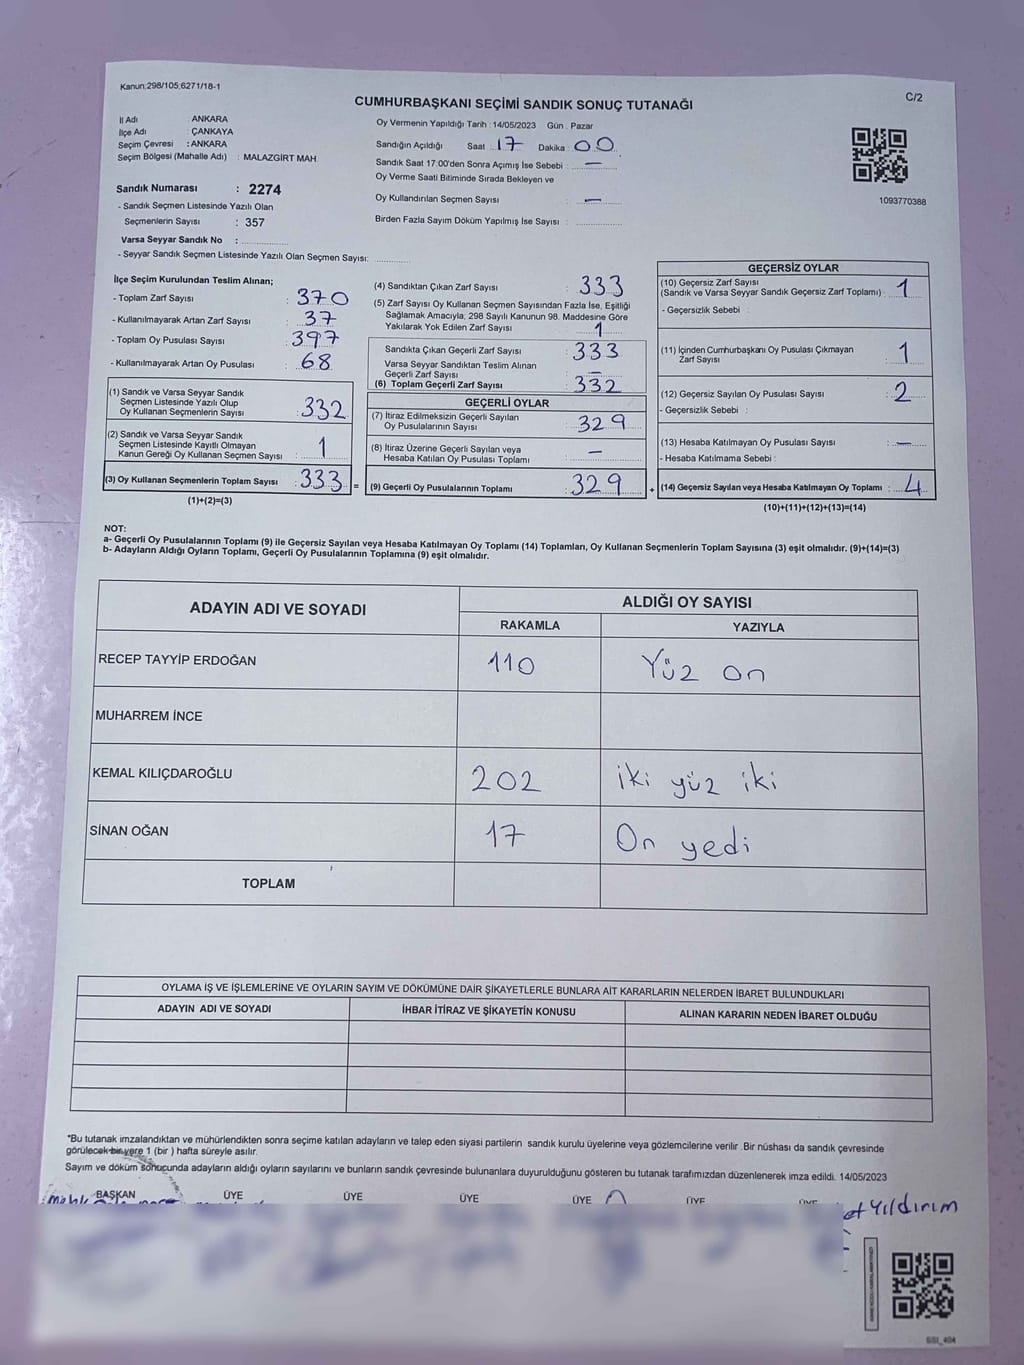 Kanun;298/105;6271/18-1
C/2
CUMHURBAŞKANI SEÇİMİ SANDIK SONUÇ TUTANAĞI
İl Adı ANKARA
İlçe Adı ÇANKAYA
Seçim Çevresi : ANKARA
Seçim Bölgesi (Mahalle Adı) : MALAZGİRT MAH.
Oy Vermenin Yapıldığı Tarih : 14/05/2023 Gün : Pazar
Sandığın Açıldığı Saat 17 Dakika : 00
Sandık Saat 17:00'den Sonra Açımış İse Sebebi : —
Oy Verme Saati Bitiminde Sırada Bekleyen ve
Oy Kullandırılan Seçmen Sayısı : —
Birden Fazla Sayım Döküm Yapılmış İse Sayısı :
1093770388
Sandık Numarası : 2274
- Sandık Seçmen Listesinde Yazılı Olan
Seçmenlerin Sayısı : 357
Varsa Seyyar Sandık No :
- Seyyar Sandık Seçmen Listesinde Yazılı Olan Seçmen Sayısı:
İlçe Seçim Kurulundan Teslim Alınan;
- Toplam Zarf Sayısı : 370
- Kullanılmayarak Artan Zarf Sayısı : 37
- Toplam Oy Pusulası Sayısı : 397
- Kullanılmayarak Artan Oy Pusulası : 68
(1) Sandık ve Varsa Seyyar Sandık
Seçmen Listesinde Yazılı Olup
Oy Kullanan Seçmenlerin Sayısı : 332
(2) Sandık ve Varsa Seyyar Sandık
Seçmen Listesinde Kayıtlı Olmayan
Kanun Gereği Oy Kullanan Seçmen Sayısı : 1
(3) Oy Kullanan Seçmenlerin Toplam Sayısı : 333 =
(1)+(2)=(3)
(4) Sandıktan Çıkan Zarf Sayısı : 333
(5) Zarf Sayısı Oy Kullanan Seçmen Sayısından Fazla İse, Eşitliği
Sağlamak Amacıyla; 298 Sayılı Kanunun 98. Maddesine Göre
Yakılarak Yok Edilen Zarf Sayısı : 1
Sandıkta Çıkan Geçerli Zarf Sayısı : 333
Varsa Seyyar Sandıktan Teslim Alınan
Geçerli Zarf Sayısı : —
(6) Toplam Geçerli Zarf Sayısı : 332
GEÇERLİ OYLAR
(7) İtiraz Edilmeksizin Geçerli Sayılan
Oy Pusulalarının Sayısı : 329
(8) İtiraz Üzerine Geçerli Sayılan veya
Hesaba Katılan Oy Pusulası Toplamı : —
(9) Geçerli Oy Pusulalarının Toplamı : 329 +
GEÇERSİZ OYLAR
(10) Geçersiz Zarf Sayısı
(Sandık ve Varsa Seyyar Sandık Geçersiz Zarf Toplamı) : 1
- Geçersizlik Sebebi :
(11) İçinden Cumhurbaşkanı Oy Pusulası Çıkmayan
Zarf Sayısı : 1
(12) Geçersiz Sayılan Oy Pusulası Sayısı : 2
- Geçersizlik Sebebi :
(13) Hesaba Katılmayan Oy Pusulası Sayısı : —
- Hesaba Katılmama Sebebi :
(14) Geçersiz Sayılan veya Hesaba Katılmayan Oy Toplamı : 4
(10)+(11)+(12)+(13)=(14)
NOT:
a- Geçerli Oy Pusulalarının Toplamı (9) ile Geçersiz Sayılan veya Hesaba Katılmayan Oy Toplamı (14) Toplamları, Oy Kullanan Seçmenlerin Toplam Sayısına (3) eşit olmalıdır. (9)+(14)=(3)
b- Adayların Aldığı Oyların Toplamı, Geçerli Oy Pusulalarının Toplamına (9) eşit olmalıdır.
ADAYIN ADI VE SOYADI
ALDIĞI OY SAYISI
RAKAMLA YAZIYLA
RECEP TAYYİP ERDOĞAN 110 Yüz on
MUHARREM İNCE
KEMAL KILIÇDAROĞLU 202 iki yüz iki
SİNAN OĞAN 17 On yedi
TOPLAM
OYLAMA İŞ VE İŞLEMLERİNE VE OYLARIN SAYIM VE DÖKÜMÜNE DAİR ŞİKAYETLERLE BUNLARA AİT KARARLARIN NELERDEN İBARET BULUNDUKLARI
ADAYIN ADI VE SOYADI İHBAR İTİRAZ VE ŞİKAYETİN KONUSU ALINAN KARARIN NEDEN İBARET OLDUĞU
*Bu tutanak imzalandıktan ve mühürlendikten sonra seçime katılan adayların ve talep eden siyasi partilerin sandık kurulu üyelerine veya gözlemcilerine verilir .Bir nüshası da sandık çevresinde
görülecek bir yere 1 (bir ) hafta süreyle asılır.
Sayım ve döküm sonucunda adayların aldığı oyların sayılarını ve bunların sandık çevresinde bulunanlara duyurulduğunu gösteren bu tutanak tarafımızdan düzenlenerek imza edildi. 14/05/2023
BAŞKAN ÜYE ÜYE ÜYE ÜYE ÜYE ÜYE
Yıldırım